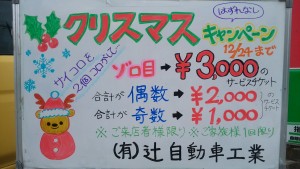 はずれなし
クリスマス キャンペーン
12/24まで
サイコロを
2個コロがして
ゾロ目→¥3,000の
サービスチケット
合計が 偶数→¥2,000
合計が 奇数→¥1,000
のサービスチケット
※ご来店者様限り ※ご家族様1回限り
(有)辻自動車工業